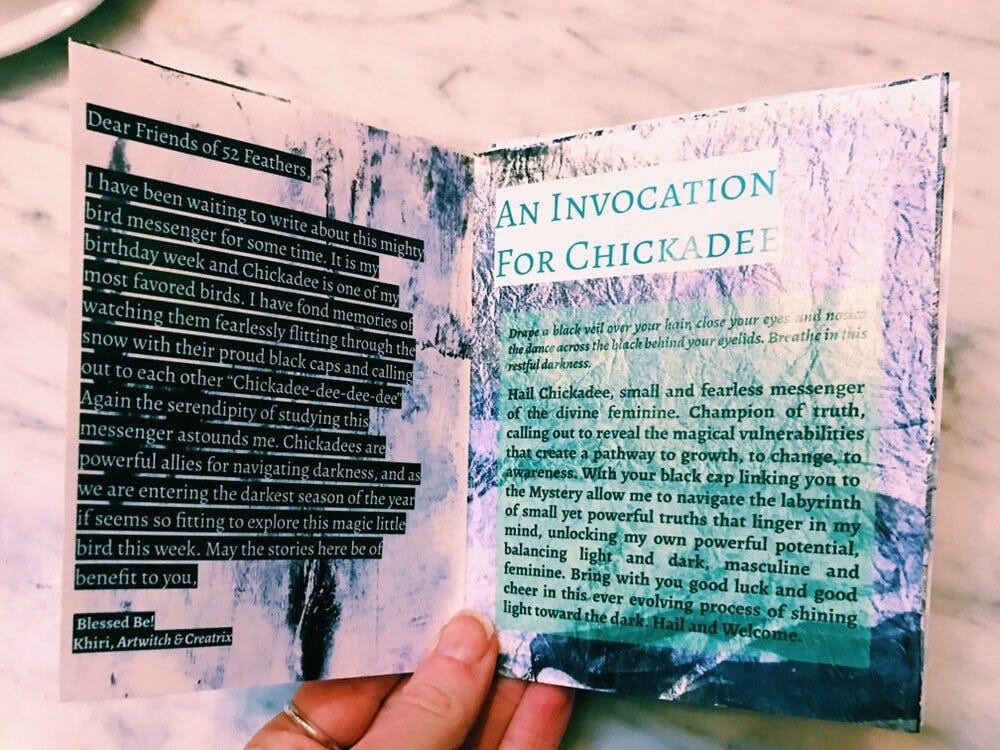 Dear Friends of 52 Feathers,
I have been waiting to write about this mighty
bird messenger for some time. It is my
birthday week and Chickadee is one of my
most favored birds. I have fond memories of
watching them fearlessly flitting through the
snow with their proud black caps and calling
out to each other “Chickadee-dee-dee-dee”
Again the serendipity of studying this
messenger astounds me. Chickadees are
powerful allies for navigating darkness, and as
we are entering the darkest season of the year
if seems so fitting to explore this magic little
bird this week. May the stories here be of
benefit to you,
Blessed Be!
Khiri, Artwitch & Creatrix
An Invocation
For Chickadee
Drape a black veil over your hair, close your eyes and notice
the dance across the black behind your eyelids. Breathe in this
restful darkness.
Hail Chickadee, small and fearless messenger
of the divine feminine. Champion of truth,
calling out to reveal the magical vulnerabilities
that create a pathway to growth, to change, to
awareness. With your black cap linking you to
the Mystery allow me to navigate the labyrinth
of small yet powerful truths that linger in my
mind, unlocking my own powerful potential,
balancing light and dark, masculine and
feminine. Bring with you good luck and good
cheer in this ever evolving process of shining
light toward the dark. Hail and Welcome.